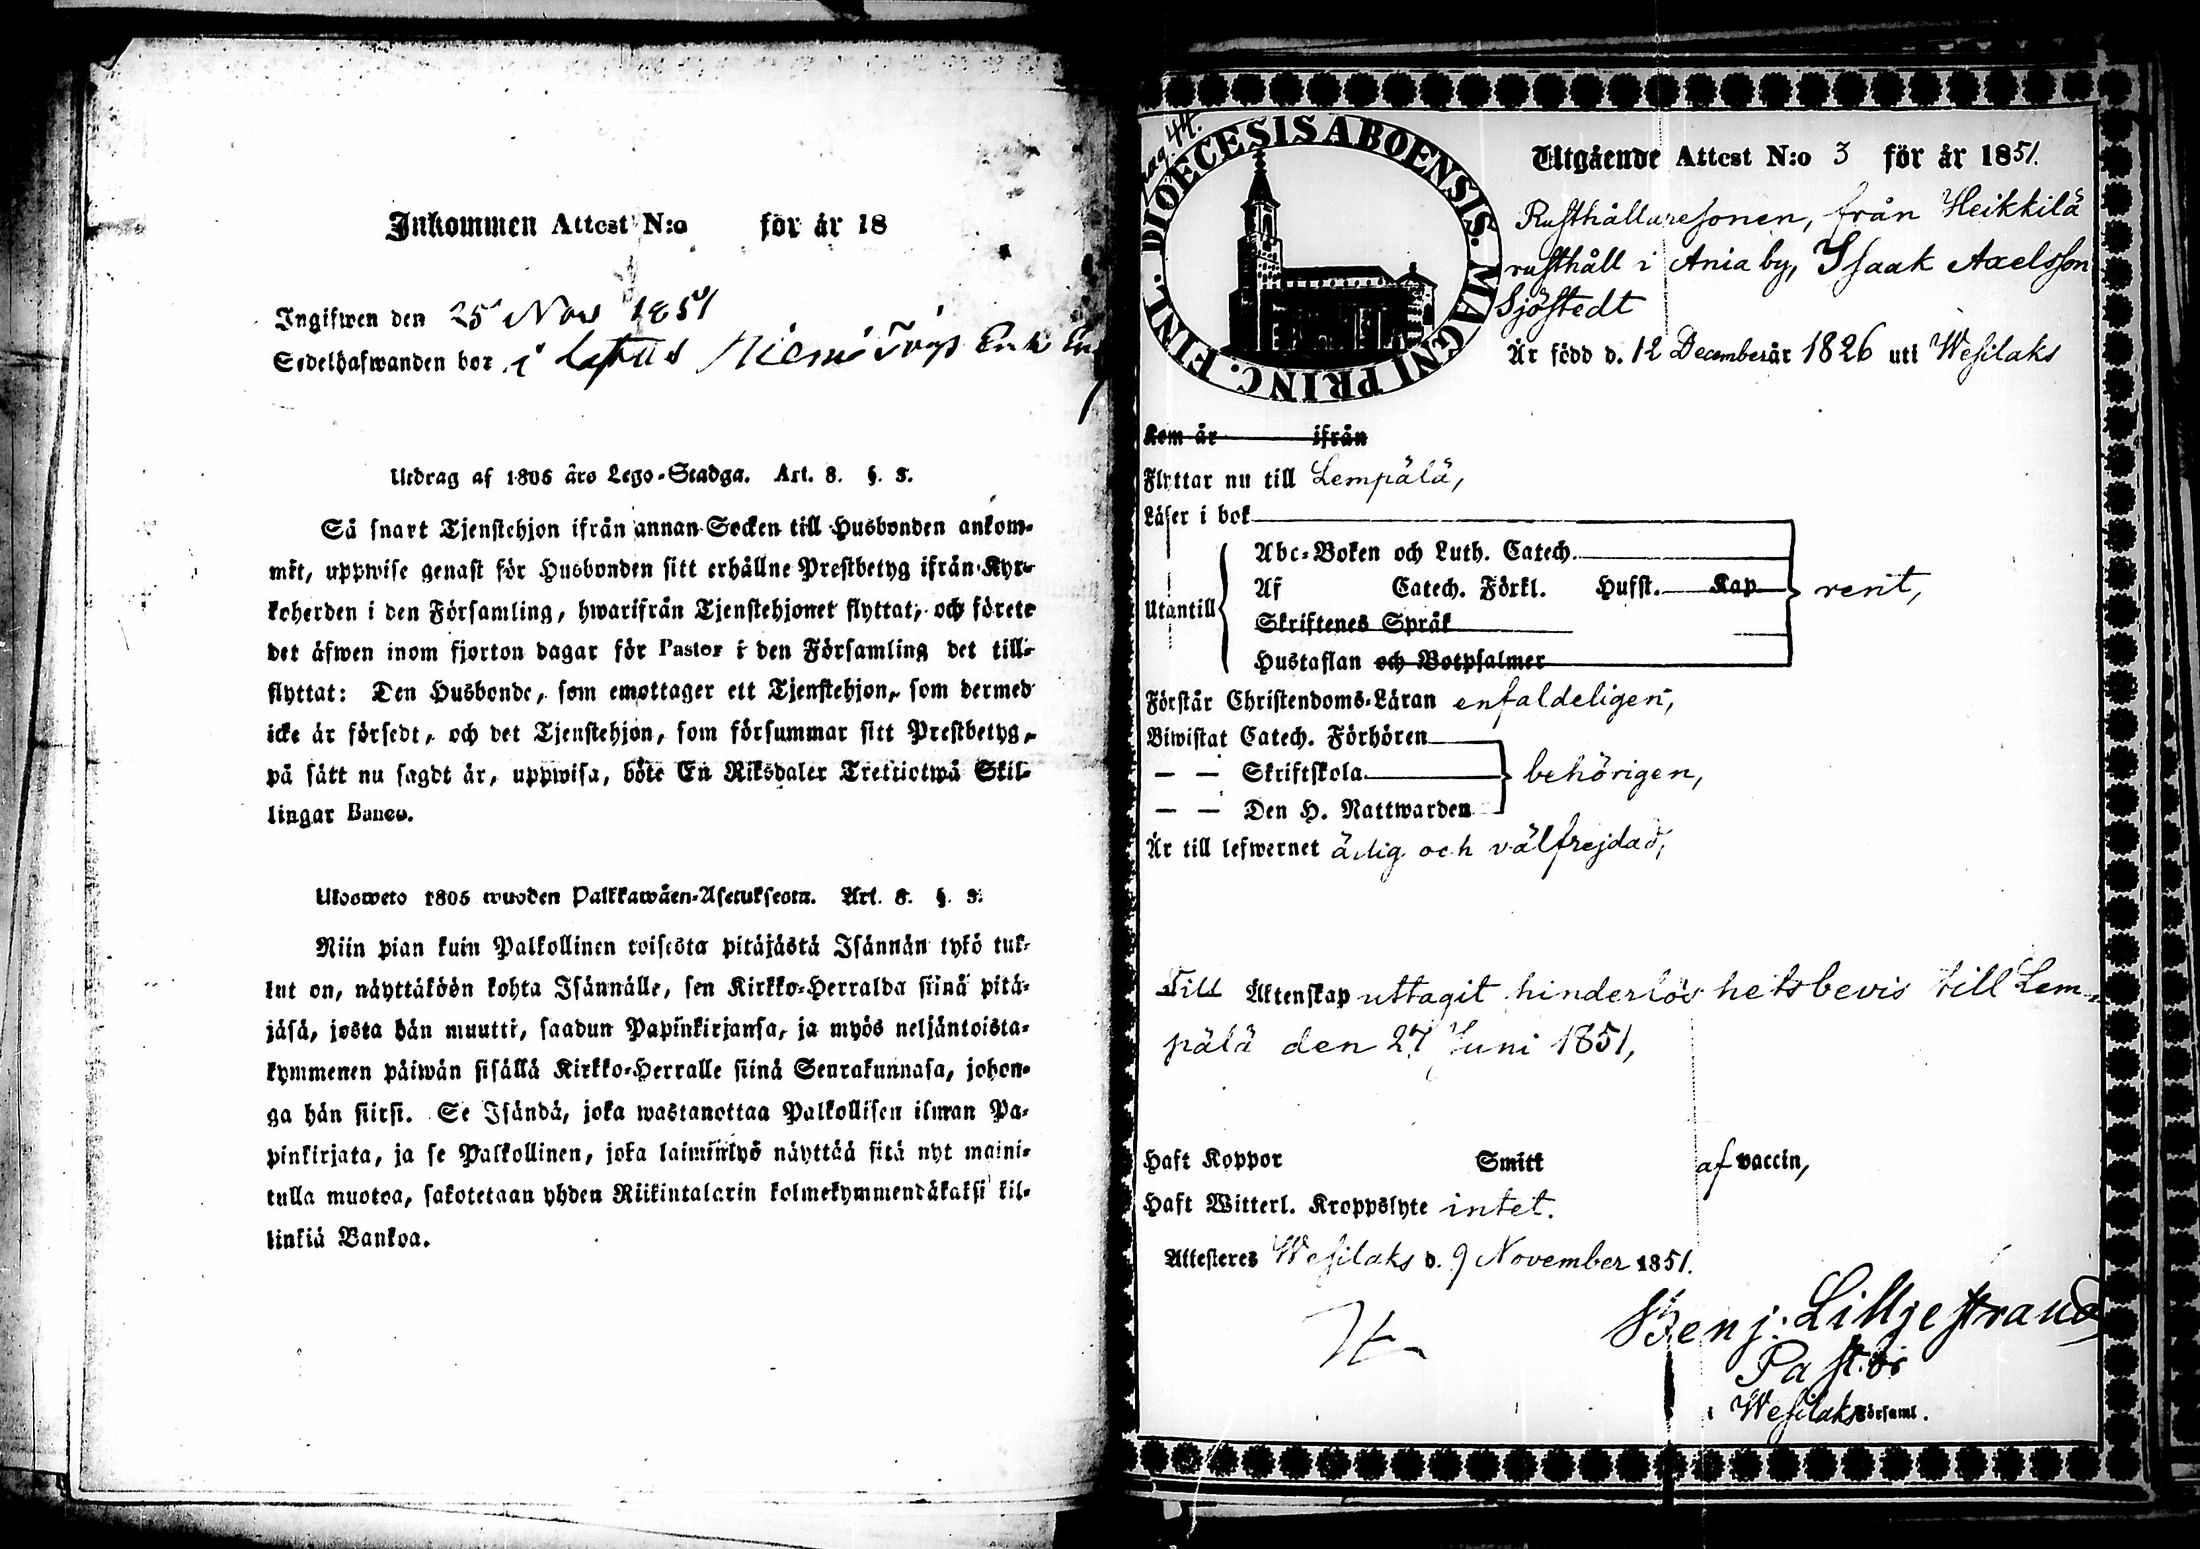 Inkommen Attest N:o för år 18
Ingifwen den 25 Nov 1851
Sedelhafwanden bor i
Utdrag af 1805 års Lego-Stadga. Art. 8. §. 3.
Så snart Tjenstehjon ifrån annan Socken till Husbonden ankom-
mit, uppwise genast för Husbonden sitt erhållne Prestbetyg ifrån Kyr-
koherden i den Församling, hwarifrån Tjenstehjonet flyttat, och förete
det äfwen inom fjorton dagar för Pastor i den Församling det till-
flyttat: Den Husbonde, som emottager ett Tjenstehjon, som dermed
icke är försedt, och det Tjenstehjon, som försummar sitt Prestbetyg,
på sätt nu sagdt är, uppwisa, böte En Riksdaler Trettiotwå Skil-
lingar Banco.
Ulosweto 1805 wuoden Palkkawäen-Asetuksesta. Art. 8. §. 3.
Niin pian kuin Palkollinen toisesta pitäjästä Isännän tykö tul-
lut on, näyttäköön kohta Isännälle, sen Kirkko-Herralda siinä pitä-
jäsä, josta hän muutti, saadun Papinkirjansa, ja myös neljäntoista-
kymmenen päiwän sisällä Kirkko-Herralle siinä Seurakunnasa, johon-
ga hän siirsi. Se Isändä, joka wastanottaa Palkollisen ilman Pa-
pinkirjata, ja se Palkollinen, joka laiminlyö näyttää sitä nyt maini-
tulla muotoa, sakotetaan yhden Riikintalarin kolmekymmendäkaksi kil-
linkiä Bankoa.
pag. 44.
DIOECESIS ABOENSIS. MAGNI PRINC. FINL.
Utgående Attest N:o 3 för år 1851.
Rusthållaresonen, från Heikkilä
rusthåll i Ania by, Isaak Axelsson
Sjöstedt
Är född d. 12 December år 1826 uti Wesilaks
Kom år ifrån
Flyttar nu till Lempälä,
Läser i bok
Utantill
Abc-Boken och Luth. Catech.
Af Catech. Förkl. Hufst. Kap
Skriftenes Språk
Hustaflan och Botpsalmer
rent,
Förstår Christendoms-Läran enfaldeligen,
Biwistat Catech. Förhören
— — Skriftskola
— — Den H. Nattwarden
behörigen,
Är till lefwernet ärlig och välfrejdad,
Till Äktenskap uttagit hinderlöshetsbevis till Lem-
pälä den 27 Juni 1851,
Haft Koppor Smitt af vaccin,
Haft Witterl. Kroppslyte intet.
Attesteres Wesilaks d. 9 November 1851.
Benj: Lilljestrand
Pastor
i Wesilaks Församl.